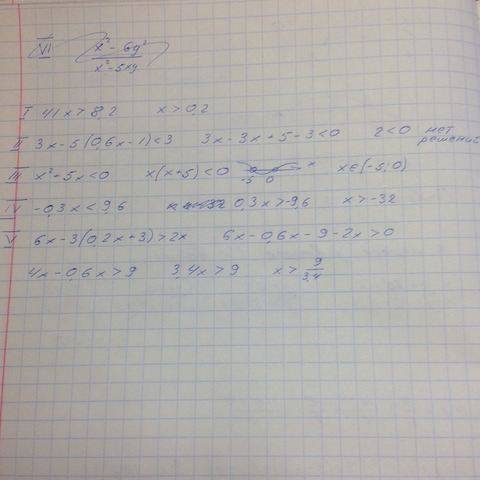 VI x² - 6y² / x² - 5xy
I 41x > 8,2 x > 0,2
II 3x - 5(0,6x - 1) < 3 3x - 3x + 5 - 3 < 0 2 < 0 нет решение
III x² + 5x < 0 x(x + 5) < 0 -5 0 x x ∈ (-5; 0)
IV -0,3x < 9,6 0,3x > -9,6 x > -32
V 6x - 3(0,2x + 3) > 2x 6x - 0,6x - 9 - 2x > 0
4x - 0,6x > 9 3,4x > 9 x > 9/3,4